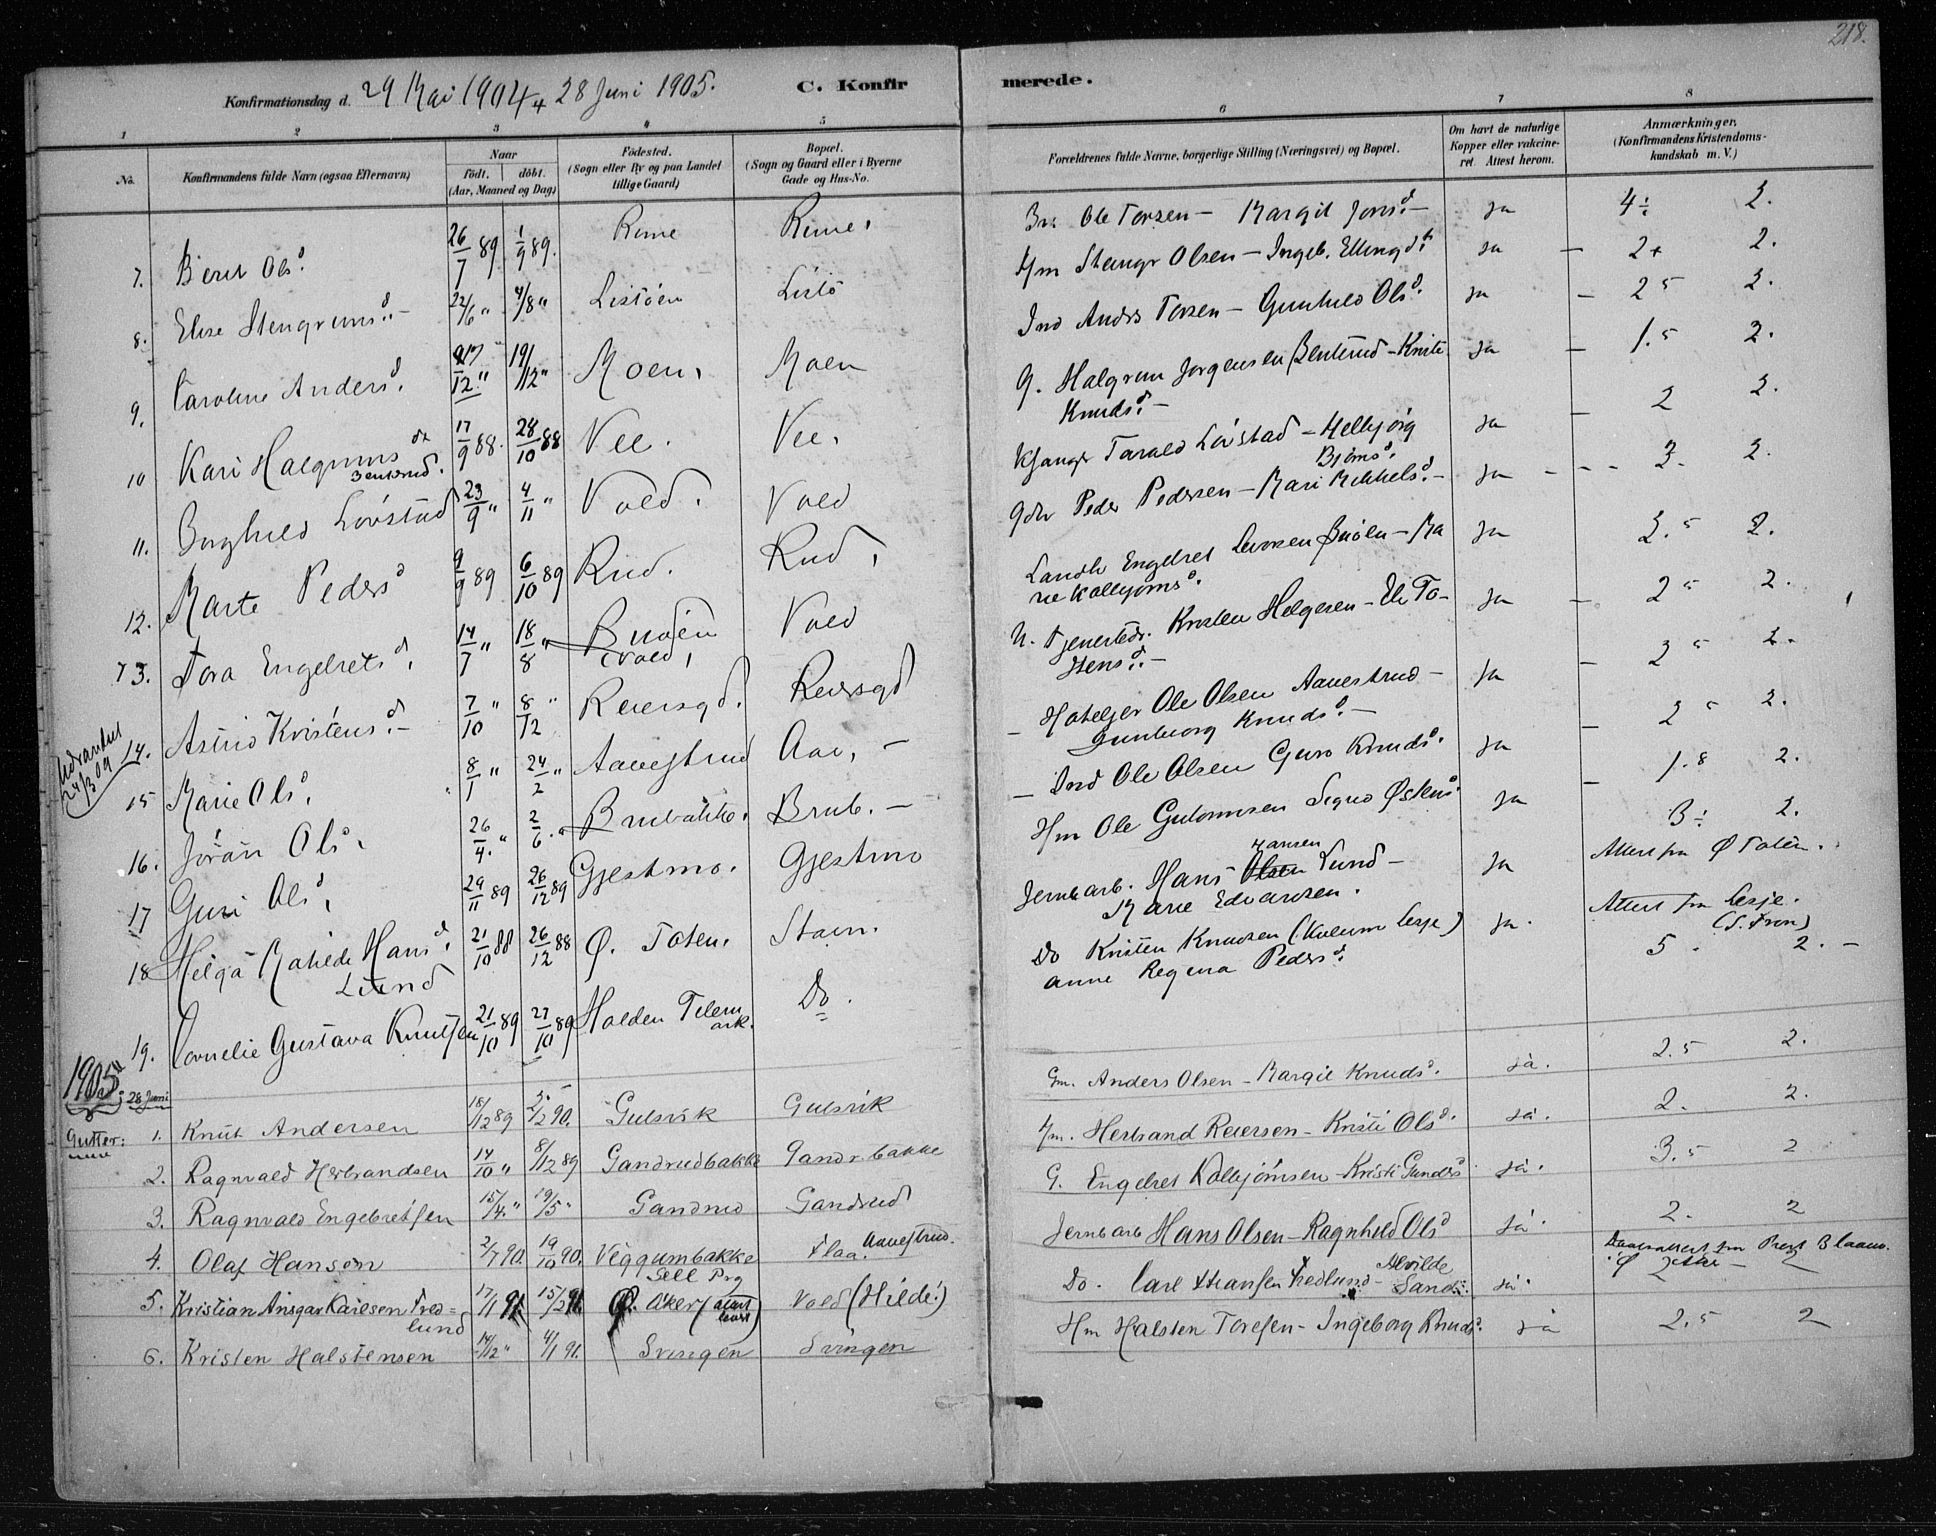 218.
Konfirmationsdag d. 29 Mai 1904 + 28 Juni 1905. C. Konfirmerede.
1 2 3 4 5 6 7 8
No. Konfirmandens fulde Navn (ogsaa Efternavn) Naar født. døbt. (Aar, Maaned og Dag) Fødested. (Sogn eller By og paa Landet tillige Gaard) Bopæl. (Sogn og Gaard eller i Byerne Gade og Hus-No. Forældrenes fulde Navne, borgerlige Stilling (Næringsvei) og Bopæl. Om havt de naturlige Kopper eller vakcineret. Attest herom. Anmærkninger. (Konfirmandens Kristendomskundskab m. V.)
7. Berit Olsd. 26/7 89 1/9 89. Rime Rime. Ole Torsen — Margit Jonsd. — ja 4÷ 2.
8. Elise Stengrimsd. — 22/6 " 4/8 " Listøen Listø Hm Stengr Olsen — Ingeb. Ellingsd. ja — 2+ 2.
9. Caroline Andersd. 17/12 " 19/12 " Moen. Moen Ind Anders Torsen — Gunhild Olsd. ja — 2 5 2.
10 Kari Halgrimsd. Benterud. 17/9 88. 28/10 88 Vee. Vee. G. Halgrim Jørgensen Benterud — Kristi Knudsd. — ja — 1.5 2.
11. Borghild Løvstad 23/9 " 4/11 " Vold. Vold Tarald Løvstad — Helbjørg Bjørnsd. ja — 2 2.
12. Marte Pedersd 9/9 89 6/10 89 Rud. Rud. Gdr Peder Pedersen — Mari Mikkelsd. — ja - - - 3. 2.
13. Tora Engebretsd. 14/7 " 18/8 " Bruøen (Vold) Vold Landh Engebret Larsen Bruøen — Marie Kolbjørnsd. ja 3.5 2.
Udvandret 24/3 09
14. Astrid Kristensd. — 7/10 " 8/12 " Reiersgd. Reiersgd U. Tjenestedr. Kristen Helgesen — Eli Tostensd. — ja — 2 5 2.
15 Marie Olsd. 8/1 " 24/2 " Aavestrud Aav. — — Hotelejer Ole Olsen Aavestrud — Gunbjorg Knudsd. — ja — 3 5 2.
16. Jöran Olsd. 26/4. " 2/6. " Brubakke. Brub. — — Ind Ole Olsen Guro Knudsd. ja — 2 5 2.
17 Guri Olsd. 29/11 89 26/12 89 Gjestmo. Gjestmo Hm Ole Gulormsen Signe Østensd. ja — 1.8 2.
18 Helga Matilde Hansd. Lund 21/10 88 26/12 88 Ø. Toten. Stavn. Jernb arb. Hans Hansen Lund — Marie Edvardsen. ja 3÷ 2. Attest fra Ø Toten.
19. Cornelie Gustava Knutsen 21/10 89 27/10 89 Holden Telemark. Do. Do Kristen Knudsen (Kolium Lesje) Anne Regina Pedersd. ja. Attest fra Lesje. (S. Fron) 5 2. —
1905
28 Juni
Gutter: 1. Knut Andersen 18/12 89 2/2 90. Gulsvik Gulsvik Gm. Anders Olsen — Margit Knudsd. ja. 2.5 2.
2. Ragnvald Herbrandsen 14/10 " 8/12 89 Gandrudbakke Gandr.bakke Hm. Herbrand Reiersen — Kristi Olsd. ja. 2. 2.
3. Ragnvald Engebretsen 15/4. " 19/5 " Gandrud Gandrud G. Engebret Kolbjørnsen — Kristi Gundersd ja. 3.5 2
4. Olaf Hansen 2/7 90. 19/10 90. Veggumbakke Sell Prg Flaa. Aavestrud. Jernb arb Hans Olsen — Ragnhild Olsd ja. 2. 2
5. Kristian Ansgar Karlsen Fredlund 17/1 91 15/2 91. Ø. Aker Vold (Hilde!) Do. Carl Hansen Fredlund — Alvilde Sand ja. Daabsattest fra Prest Blaauw. 2 — 2
6. Kristen Halstensen 14/12 " 4/1 91. Svingen Svingen Hm Halsten Toresen — Ingeborg Knudsd. ja 2.5 2